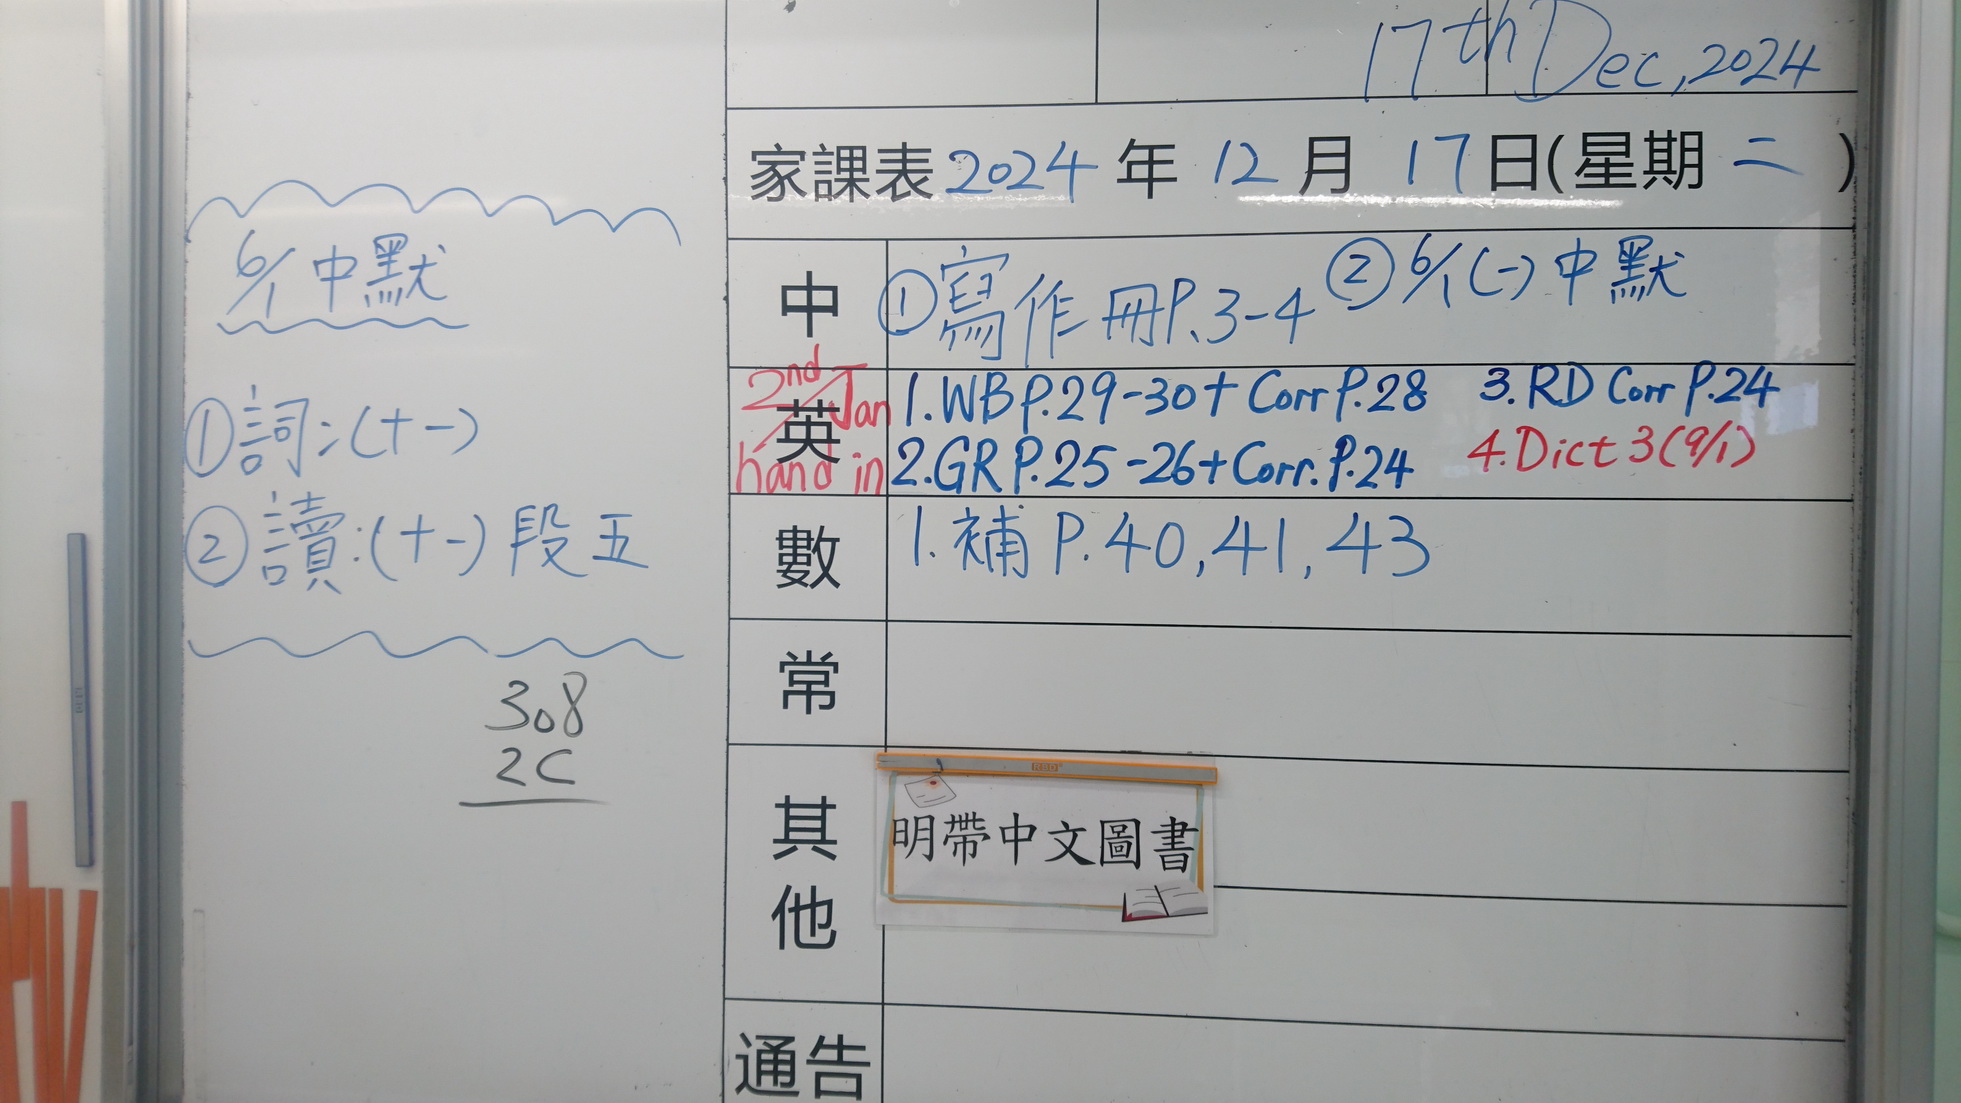 17th Dec, 2024
家課表 2024 年 12 月 17 日(星期 二 )
6/1 中默
① 詞:(十一)
② 讀:(十一) 段五
308
2C
中
① 寫作冊P.3-4 ② 6/1 (一) 中默
2nd/Jan
hand in
英
1.WB P.29-30+ Corr P.28 3.RD Corr P.24
2.GR P.25-26+Corr. P.24 4.Dict 3 (9/1)
數
1. 補 P.40, 41, 43
常
其他
明帶中文圖書
通告